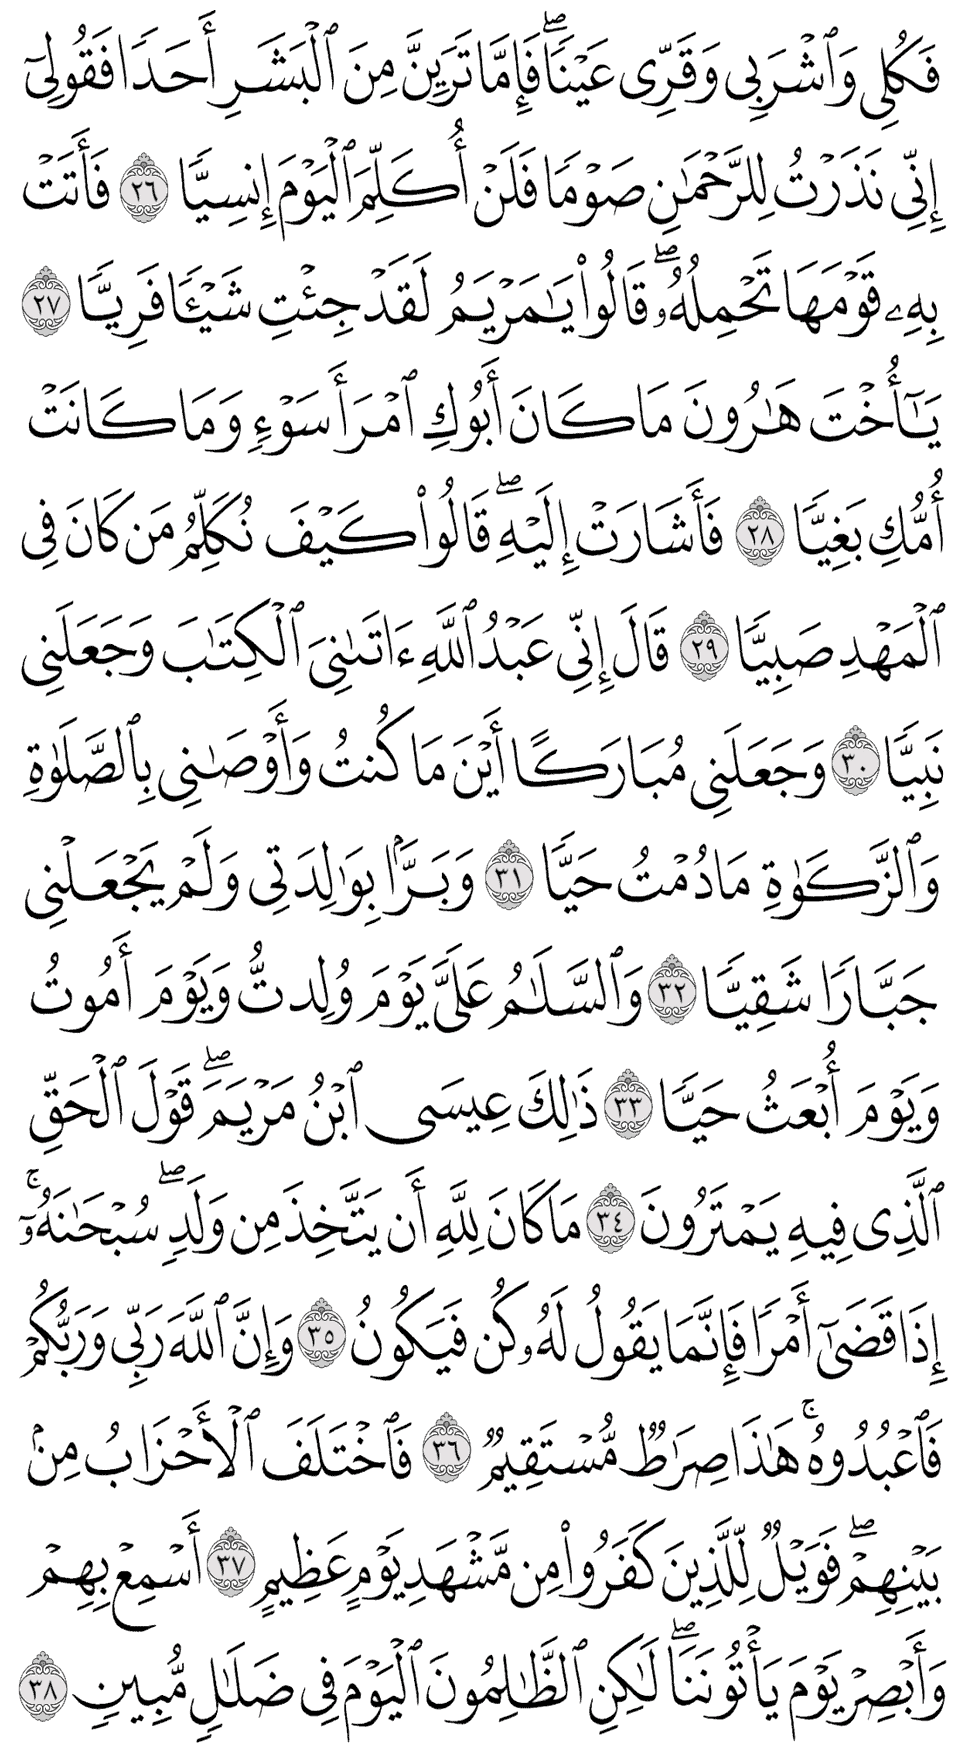 فَكُلِى وَٱشْرَبِى وَقَرِّى عَيْنًۭا ۖ فَإِمَّا تَرَيِنَّ مِنَ ٱلْبَشَرِ أَحَدًۭا فَقُولِىٓ
إِنِّى نَذَرْتُ لِلرَّحْمَـٰنِ صَوْمًۭا فَلَنْ أُكَلِّمَ ٱلْيَوْمَ إِنسِيًّۭا ٢٦ فَأَتَتْ
بِهِۦ قَوْمَهَا تَحْمِلُهُۥ ۖ قَالُوا۟ يَـٰمَرْيَمُ لَقَدْ جِئْتِ شَيْـًۭٔا فَرِيًّۭا ٢٧
يَـٰٓأُخْتَ هَـٰرُونَ مَا كَانَ أَبُوكِ ٱمْرَأَ سَوْءٍۢ وَمَا كَانَتْ
أُمُّكِ بَغِيًّۭا ٢٨ فَأَشَارَتْ إِلَيْهِ ۖ قَالُوا۟ كَيْفَ نُكَلِّمُ مَن كَانَ فِى
ٱلْمَهْدِ صَبِيًّۭا ٢٩ قَالَ إِنِّى عَبْدُ ٱللَّهِ ءَاتَىٰنِىَ ٱلْكِتَـٰبَ وَجَعَلَنِى
نَبِيًّۭا ٣٠ وَجَعَلَنِى مُبَارَكًا أَيْنَ مَا كُنتُ وَأَوْصَـٰنِى بِٱلصَّلَوٰةِ
وَٱلزَّكَوٰةِ مَا دُمْتُ حَيًّۭا ٣١ وَبَرًّۢا بِوَٰلِدَتِى وَلَمْ يَجْعَلْنِى
جَبَّارًۭا شَقِيًّۭا ٣٢ وَٱلسَّلَـٰمُ عَلَىَّ يَوْمَ وُلِدتُّ وَيَوْمَ أَمُوتُ
وَيَوْمَ أُبْعَثُ حَيًّۭا ٣٣ ذَٰلِكَ عِيسَى ٱبْنُ مَرْيَمَ ۖ قَوْلَ ٱلْحَقِّ
ٱلَّذِى فِيهِ يَمْتَرُونَ ٣٤ مَا كَانَ لِلَّهِ أَن يَتَّخِذَ مِن وَلَدٍۢ ۖ سُبْحَـٰنَهُۥٓ ۚ
إِذَا قَضَىٰٓ أَمْرًۭا فَإِنَّمَا يَقُولُ لَهُۥ كُن فَيَكُونُ ٣٥ وَإِنَّ ٱللَّهَ رَبِّى وَرَبُّكُمْ
فَٱعْبُدُوهُ ۚ هَـٰذَا صِرَٰطٌۭ مُّسْتَقِيمٌۭ ٣٦ فَٱخْتَلَفَ ٱلْأَحْزَابُ مِنۢ
بَيْنِهِمْ ۖ فَوَيْلٌۭ لِّلَّذِينَ كَفَرُوا۟ مِن مَّشْهَدِ يَوْمٍ عَظِيمٍ ٣٧ أَسْمِعْ بِهِمْ
وَأَبْصِرْ يَوْمَ يَأْتُونَنَا ۖ لَـٰكِنِ ٱلظَّـٰلِمُونَ ٱلْيَوْمَ فِى ضَلَـٰلٍۢ مُّبِينٍۢ ٣٨